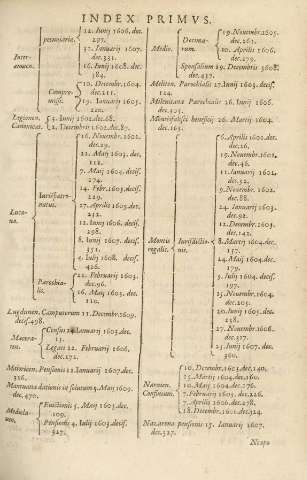 INDEX PRIMVS.
pecuniaria.
12. Iunij 1606. dec.
292.
12. Ianuarij 1607.
dec. 331.
16. Iunij 1608. dec.
384.
Interamnen.
Compromisse.
10. Decembr. 1604.
dec. 211.
19. Ianuarij 1605.
dec. 220.
Legionen. 5. Iunij 1602. dec. 68.
Canonicat. 2. Decembris 1602. dec. 87.
Lucana.
Iurispatronatus.
16. Nouembr. 1601.
dec. 29.
21. Maij 1603. dec.
112.
7. Maij 1604. decis.
174.
14. Febr. 1605. dec.
229.
27. Aprilis 1605. dec.
252.
12. Iunij 1606. decis.
298.
8. Iunij 1607. decis.
351.
4. Iulij 1608. decis.
426.
Parochialis.
21. Februarij 1603.
dec. 96.
26. Maij 1603. dec.
110.
Lugdunen. Computorum 11. Decemb. 1609.
decis. 498.
Maceraten.
Census 24. Ianuarij 1603. dec.
15.
Legati 22. Februarij 1606.
dec. 272.
Matricen. Pensionis 12. Ianuarij 1607. dec.
326.
Mantuana dationis in solutum 5. Maij 1609.
dec. 470.
Mediolanen.
Euictionis 5. Maij 1603. dec.
109.
Pensionis 4. Iulij 1603. decis.
127.
Medio.
Decimarum.
19. Nouembr. 1605.
dec. 263.
10. Aprilis 1606.
dec. 279.
Sponsalium 19. Decembris 1608.
dec. 437.
Meliten. Parochialis 27. Iunij 1603. decis.
124.
Miletana Parochialis 26. Iunij 1606.
dec. 305.
Montisfalisci beneficij 26. Martij 1604.
dec. 165.
Montis regalis.
Iurisdictionis.
6. Aprilis 1601. dec.
26.
19. Nouembr. 1601.
dec. 46.
11. Ianuarij 1602.
dec. 52.
9. Nouembr. 1602.
dec. 88.
24. Ianuarij 1603.
dec. 92.
12. Decembr. 1603.
dec. 142.
8. Martij 1604. dec.
157.
14. Maij 1604. dec.
179.
5. Iulij 1604. decis.
197.
15. Nouembr. 1604.
dec. 205.
20. Iunij 1605. dec.
258.
27. Nouembr. 1606.
dec. 317.
25. Iunij 1607. dec.
360.
Narnien. Censiuum.
10. Decembr. 1603. dec. 140.
25. Martij 1604. dec. 160.
7. Februarij 1605. dec. 226.
7. Aprilis 1606. dec. 278.
18. Decembr. 1601. dec. 324.
Nazarena pensionis 15. Ianuarij 1607.
dec. 327.
Neapo